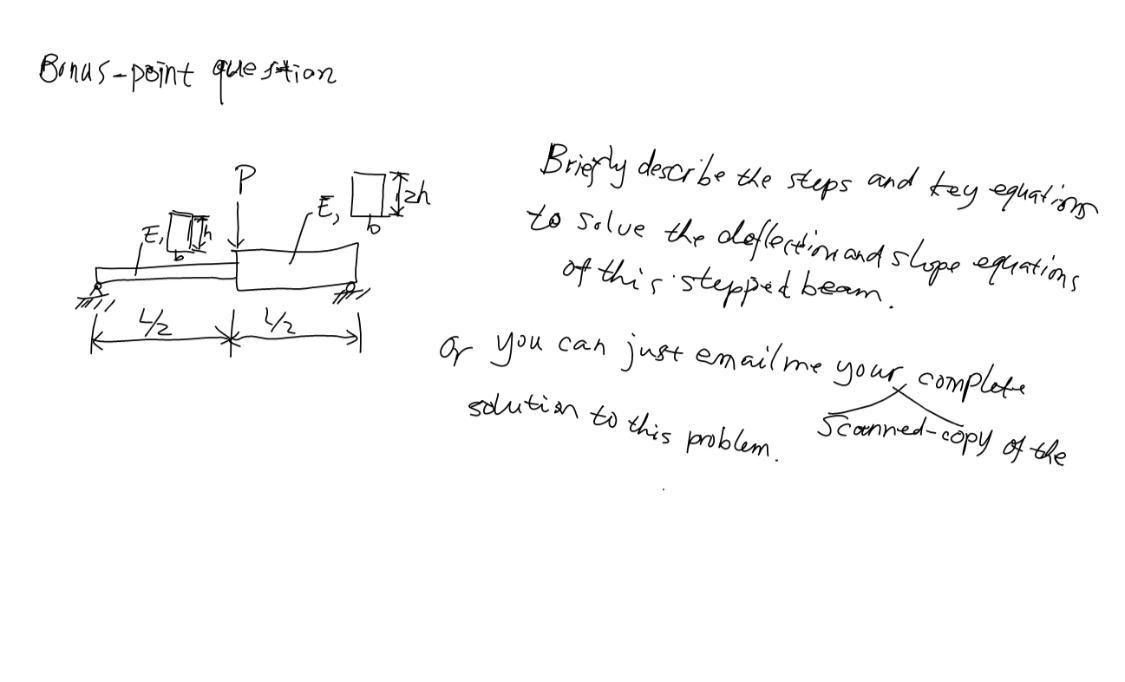 Bonus-point question
P
E,
b
h
E,
b
2h
L/2
L/2
Briefly describe the steps and key equations
to solve the deflection and slope equations
of this stepped beam.
Or you can just email me your complete
scanned-copy of the
solution to this problem.